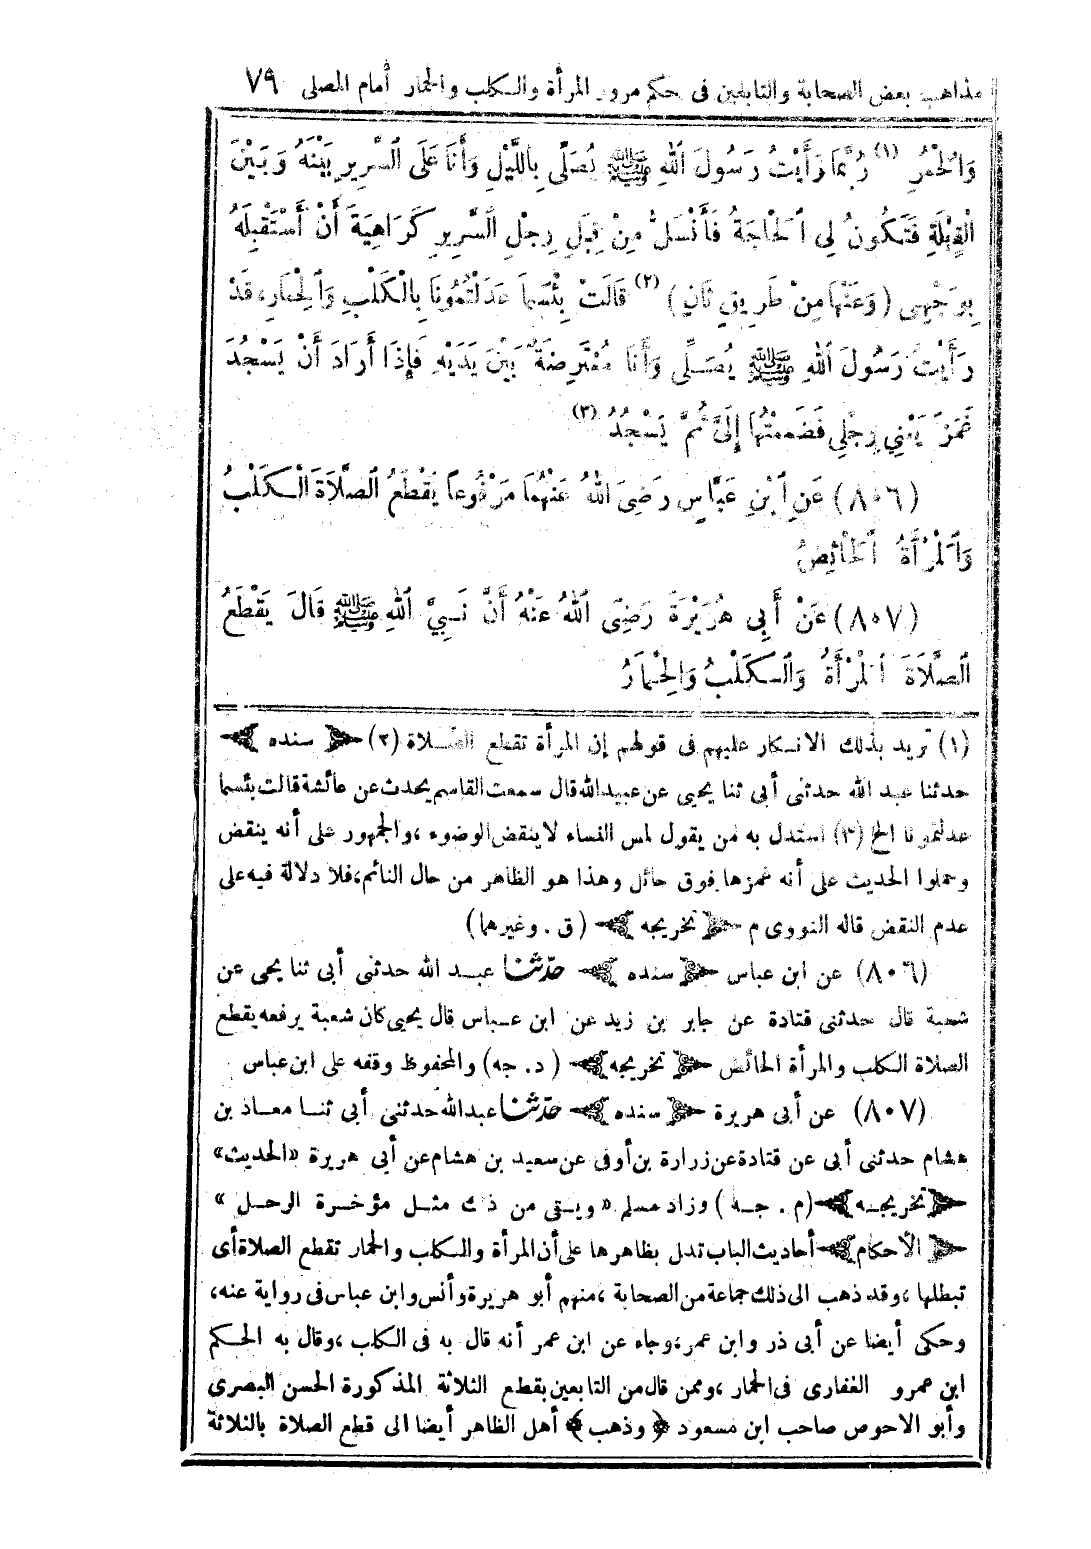 مذاهب بعض الصحابة والتابعين فى حكم مرور المرأة والكلب والحمار أمام المصلى ٧٩
وَالْحُمُرِ (١) رُبَّمَا رَأَيْتُ رَسُولَ اللهِ ﷺ يُصَلِّى بِاللَّيْلِ وَأَنَا عَلَى السَّرِيرِ بَيْنَهُ وَبَيْنَ
الْقِبْلَةِ فَتَكُونُ لِى الْحَاجَةُ فَأَنْسَلُّ مِنْ قِبَلِ رِجْلِ السَّرِيرِ كَرَاهِيَةَ أَنْ أَسْتَقْبِلَهُ
بِوَجْهِى (وَعَنْهَا مِنْ طَرِيقٍ ثَانٍ) (٢) قَالَتْ بِئْسَمَا عَدَلْتُمُونَا بِالْكَلْبِ وَالْحِمَارِ، قَدْ
رَأَيْتُ رَسُولَ اللهِ ﷺ يُصَلِّى وَأَنَا مُعْتَرِضَةٌ بَيْنَ يَدَيْهِ فَإِذَا أَرَادَ أَنْ يَسْجُدَ
غَمَزَ يَعْنِى رِجْلِى فَضَمَمْتُهَا إِلَىَّ ثُمَّ يَسْجُدُ (٣)
(٨٠٦) عَنِ ابْنِ عَبَّاسٍ رَضِىَ اللهُ عَنْهُمَا مَرْفُوعًا يَقْطَعُ الصَّلَاةَ الْكَلْبُ
وَالْمَرْأَةُ الْحَائِضُ
(٨٠٧) عَنْ أَبِى هُرَيْرَةَ رَضِىَ اللهُ عَنْهُ أَنَّ نَبِىَّ اللهِ ﷺ قَالَ يَقْطَعُ
الصَّلَاةَ الْمَرْأَةُ وَالْكَلْبُ وَالْحِمَارُ
(١) تريد بذلك الانكار عليهم فى قولهم إن المرأة تقطع الصلاة (٢) ﴿سنده﴾
حدثنا عبد الله حدثنى أبى ثنا يحيى عن عبيدالله قال سمعت القاسم يحدث عن عائشة قالت بئسما
عدلتمونا الخ (٣) استدل به من يقول لمس النساء لا ينقض الوضوء ،والجمهور على أنه ينقض
وحملوا الحديث على أنه غمزها فوق حائل وهذا هو الظاهر من حال النائم،فلا دلالة فيه على
عدم النقض قاله النووى م ﴿تخريجه﴾ (ق . وغيرهما)
(٨٠٦) عن ابن عباس ﴿سنده﴾ حدّثنا عبد الله حدثنى أبى ثنا يحيى عن
شعبة قال حدثنى قتادة عن جابر بن زيد عن ابن عباس قال يحيى كان شعبة يرفعه يقطع
الصلاة الكلب والمرأة الحائض ﴿تخريجه﴾ (د. جه) والمحفوظ وقفه على ابن عباس
(٨٠٧) عن أبى هريرة ﴿سنده﴾ حدّثنا عبدالله حدثنى أبى ثنا معاذ بن
هشام حدثنى أبى عن قتادة عن زرارة بن أوفى عن سعيد بن هشام عن أبى هريرة «الحديث»
﴿تخريجه﴾ (م . جه) وزاد مسلم «ويقى من ذلك مثل مؤخرة الرحل»
﴿الأحكام﴾ أحاديث الباب تدل بظاهرها على أن المرأة والكلب والحمار تقطع الصلاة أى
تبطلها ،وقد ذهب الى ذلك جماعة من الصحابة ،منهم أبو هريرة وأنس وابن عباس فى رواية عنه،
وحكى أيضا عن أبى ذر وابن عمر،وجاء عن ابن عمر أنه قال به فى الكلب ،وقال به الحكم
ابن عمرو الغفارى فى الحمار ،وممن قال من التابعين بقطع الثلاثة المذكورة الحسن البصرى
وأبو الاحوص صاحب ابن مسعود ﴿وذهب﴾ أهل الظاهر أيضا الى قطع الصلاة بالثلاثة